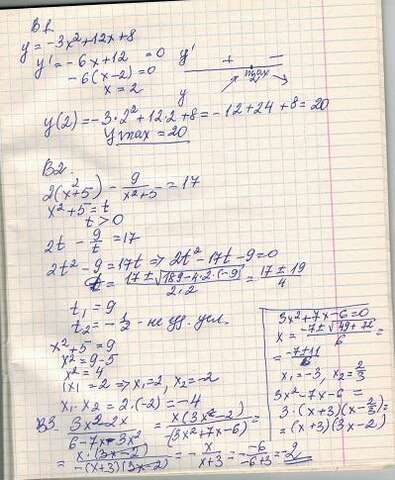 B1.
y = -3x²+12x+8
y' = -6x+12 = 0
-6(x-2)=0
x = 2
y' + −
max
2
y
y(2) = -3·2²+12·2+8 = -12+24+8=20
y max = 20
B2.
2(x²+5) - 9/(x²+5) = 17
x²+5 = t
t > 0
2t - 9/t = 17
2t² - 9 = 17t => 2t² - 17t - 9 = 0
t = (17 ± √(189-4·2·(-9)))/(2·2) = (17 ± 19)/4
t₁ = 9
t₂ = -1/2 - не уд. усл.
x²+5 = 9
x² = 9-5
x² = 4
|x| = 2 => x₁=2, x₂=-2
x₁·x₂ = 2·(-2) = -4
3x²+7x-6=0
x = (-7±√(49+72))/6 =
= (-7±11)/6
x₁=-3, x₂=2/3
3x²+7x-6 =
= 3·(x+3)(x-2/3)=
= (x+3)(3x-2)
B3. (3x²-2x)/(6-7x-3x²) = x(3x-2)/(-(3x²+7x-6)) =
= x·(3x-2)/(-(x+3)(3x-2)) = -x/(x+3) = -6/(-6+3) = 2